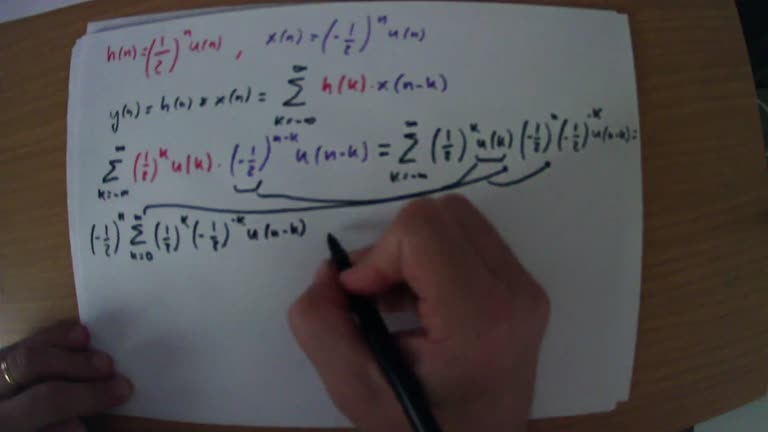 h(n)=(1/2)^n u(n) , x(n)=(-1/2)^n u(n)
y(n)=h(n)*x(n)=∑_{k=-∞}^{∞} h(k)·x(n-k)
∑_{k=-∞}^{∞} (1/2)^k u(k)·(-1/2)^{n-k} u(n-k)=∑_{k=-∞}^{∞} (1/2)^k u(k) (-1/2)^n (-1/2)^{-k} u(n-k)=
(-1/2)^n ∑_{k=0}^{∞} (1/2)^k (-1/2)^{-k} u(n-k)